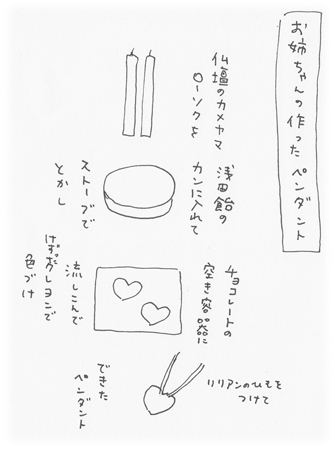 お姉ちゃんの作ったペンダント
仏壇のカメヤマ
ローソクを
浅田飴の
カンに入れて
ストーブで
とかし
チョコレートの
空き容器に
流しこんで
けずったクレヨンで
色づけ
リリアンのひもを
つけて
できた
ペンダント